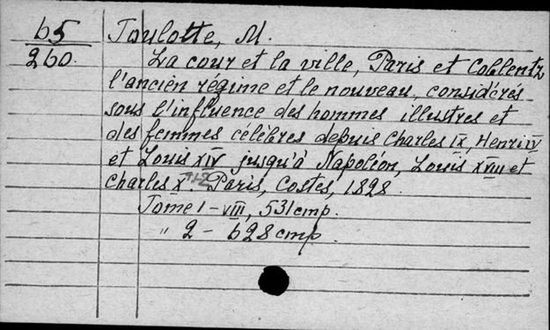 65 Toulotte, M.
260. La cour et la ville, Paris et Coblentz
l'ancien régime et le nouveau, considérés
sous l'influence des hommes illustres et
des femmes célèbres depuis Charles IX, Henri IV
et Louis XIV jusqu'à Napoléon, Louis XVIII et
Charles X. Paris, Costes, 1828.
Tome 1 - VIII, 531 cmp.
" 2 - 628 cmp.